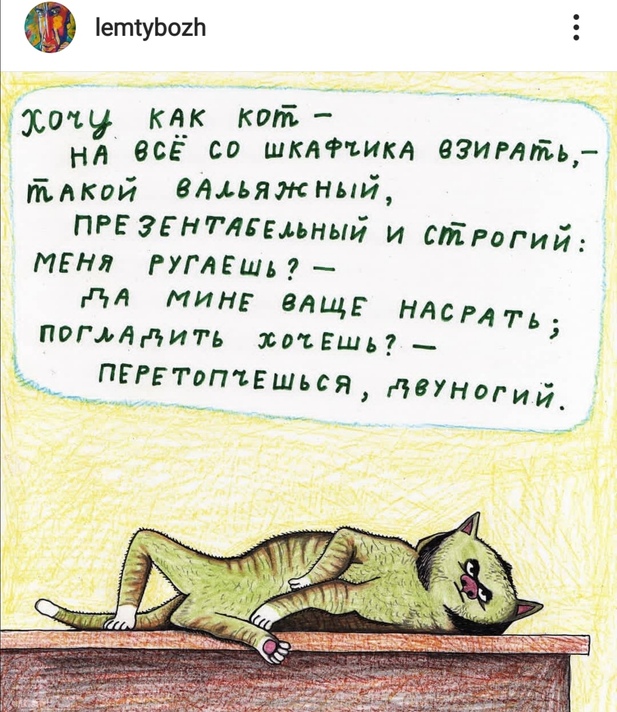 lemtybozh
ХОЧУ КАК КОТ –
НА ВСЁ СО ШКАФЧИКА ВЗИРАТЬ,–
ТАКОЙ ВАЛЬЯЖНЫЙ,
ПРЕЗЕНТАБЕЛЬНЫЙ И СТРОГИЙ:
МЕНЯ РУГАЕШЬ? –
ДА МИНЕ ВАЩЕ НАСРАТЬ;
ПОГЛАДИТЬ ХОЧЕШЬ? –
ПЕРЕТОПЧЕШЬСЯ, ДВУНОГИЙ.